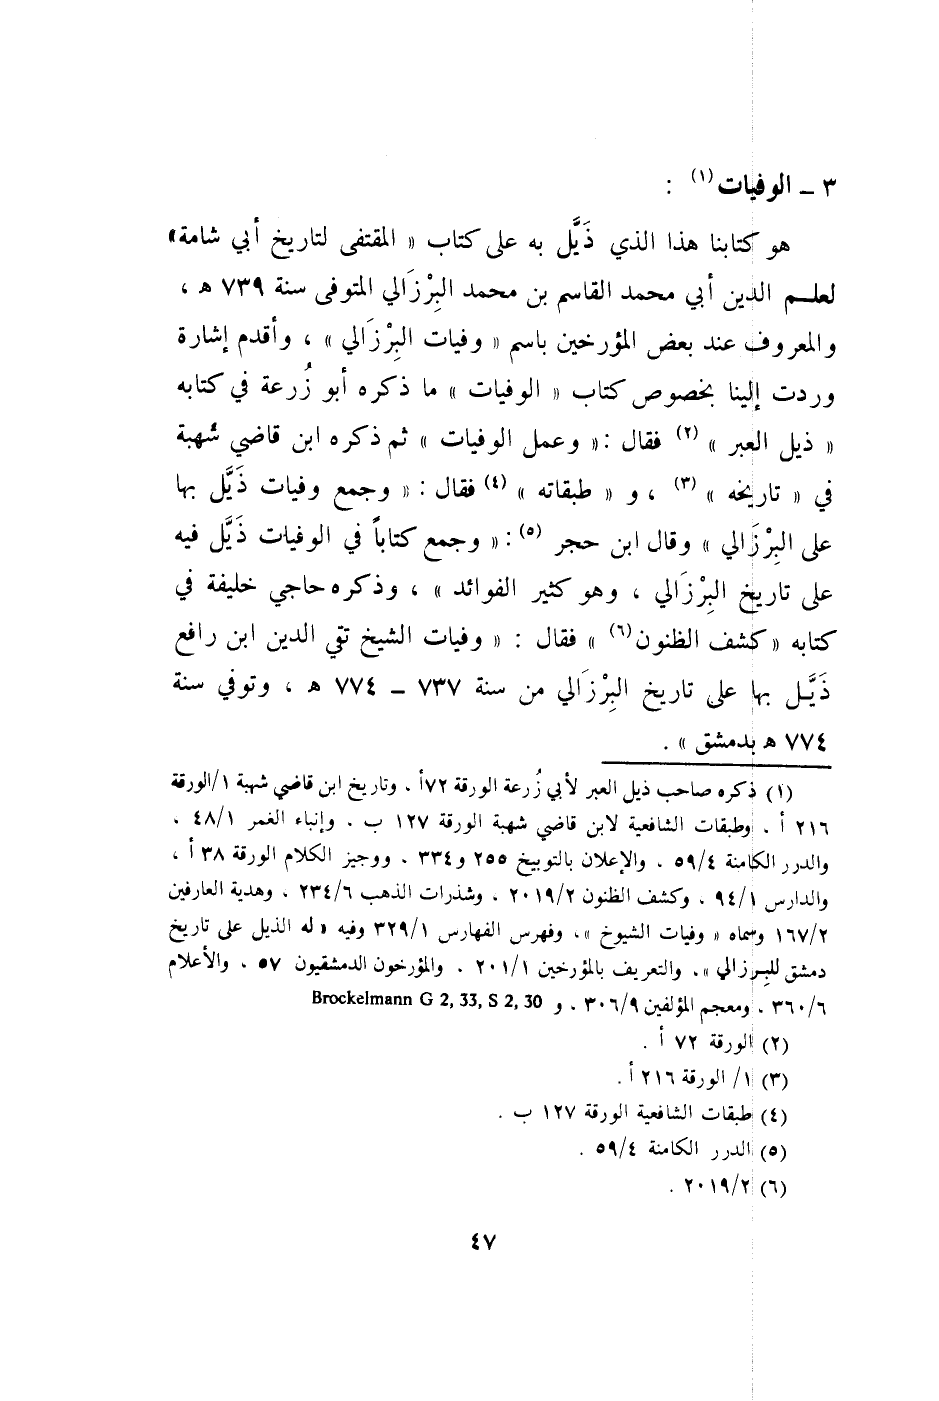 ٣ ـ الوفيات (١) :
هو كتابنا هذا الذي ذَيَّل به على كتاب « المقتفى لتاريخ أبي شامة »
لعلـم الدين أبي محمد القاسم بن محمد البِرْزَالي المتوفى سنة ٧٣٩ هـ ،
والمعروف عند بعض المؤرخين باسم « وفيات البِرْزَالي » ، وأقدم إشارة
وردت إلينا بخصوص كتاب « الوفيات » ما ذكره أبو زُرعة في كتابه
« ذيل العبر » (٢) فقال : « وعمل الوفيات » ثم ذكره ابن قاضي شُهبة
في « تاريخه » (٣) ، و « طبقاته » (٤) فقال : « وجمع وفيات ذَيَّل بها
على البِرْزَالي » وقال ابن حجر (٥) : « وجمع كتاباً في الوفيات ذَيَّل فيه
على تاريخ البِرْزَالي ، وهو كثير الفوائد » ، وذكره حاجي خليفة في
كتابه « كشف الظنون (٦) » فقال : « وفيات الشيخ تقي الدين ابن رافع
ذَيَّـل بها على تاريخ البِرْزَالي من سنة ٧٣٧ ـ ٧٧٤ هـ ، وتوفي سنة
٧٧٤ هـ بدمشق » .
(١) ذكره صاحب ذيل العبر لأبي زُرعة الورقة ٧٢أ . وتاريخ ابن قاضي شهبة ١/الورقة
٢١٦ أ . وطبقات الشافعية لابن قاضي شهبة الورقة ١٢٧ ب . وإنباء الغمر ٤٨/١ .
والدرر الكامنة ٥٩/٤ . والإعلان بالتوبيخ ٢٥٥ و٣٣٤ . ووجيز الكلام الورقة ٣٨ أ ،
والدارس ٩٤/١ ، وكشف الظنون ٢٠١٩/٢ . وشذرات الذهب ٢٣٤/٦ ، وهدية العارفين
١٦٧/٢ وسماه « وفيات الشيوخ » ، وفهرس الفهارس ٣٢٩/١ وفيه « له الذيل على تاريخ
دمشق للبرزالي » . والتعريف بالمؤرخين ٢٠١/١ . والمؤرخون الدمشقيون ٥٧ . والأعلام
٣٦٠/٦ . ومعجم المؤلفين ٣٠٦/٩ . و Brockelmann G 2, 33, S 2, 30
(٢) الورقة ٧٢ أ .
(٣) ١/ الورقة ٢١٦ أ .
(٤) طبقات الشافعية الورقة ١٢٧ ب .
(٥) الدرر الكامنة ٥٩/٤ .
(٦) ٢٠١٩/٢ .
٤٧